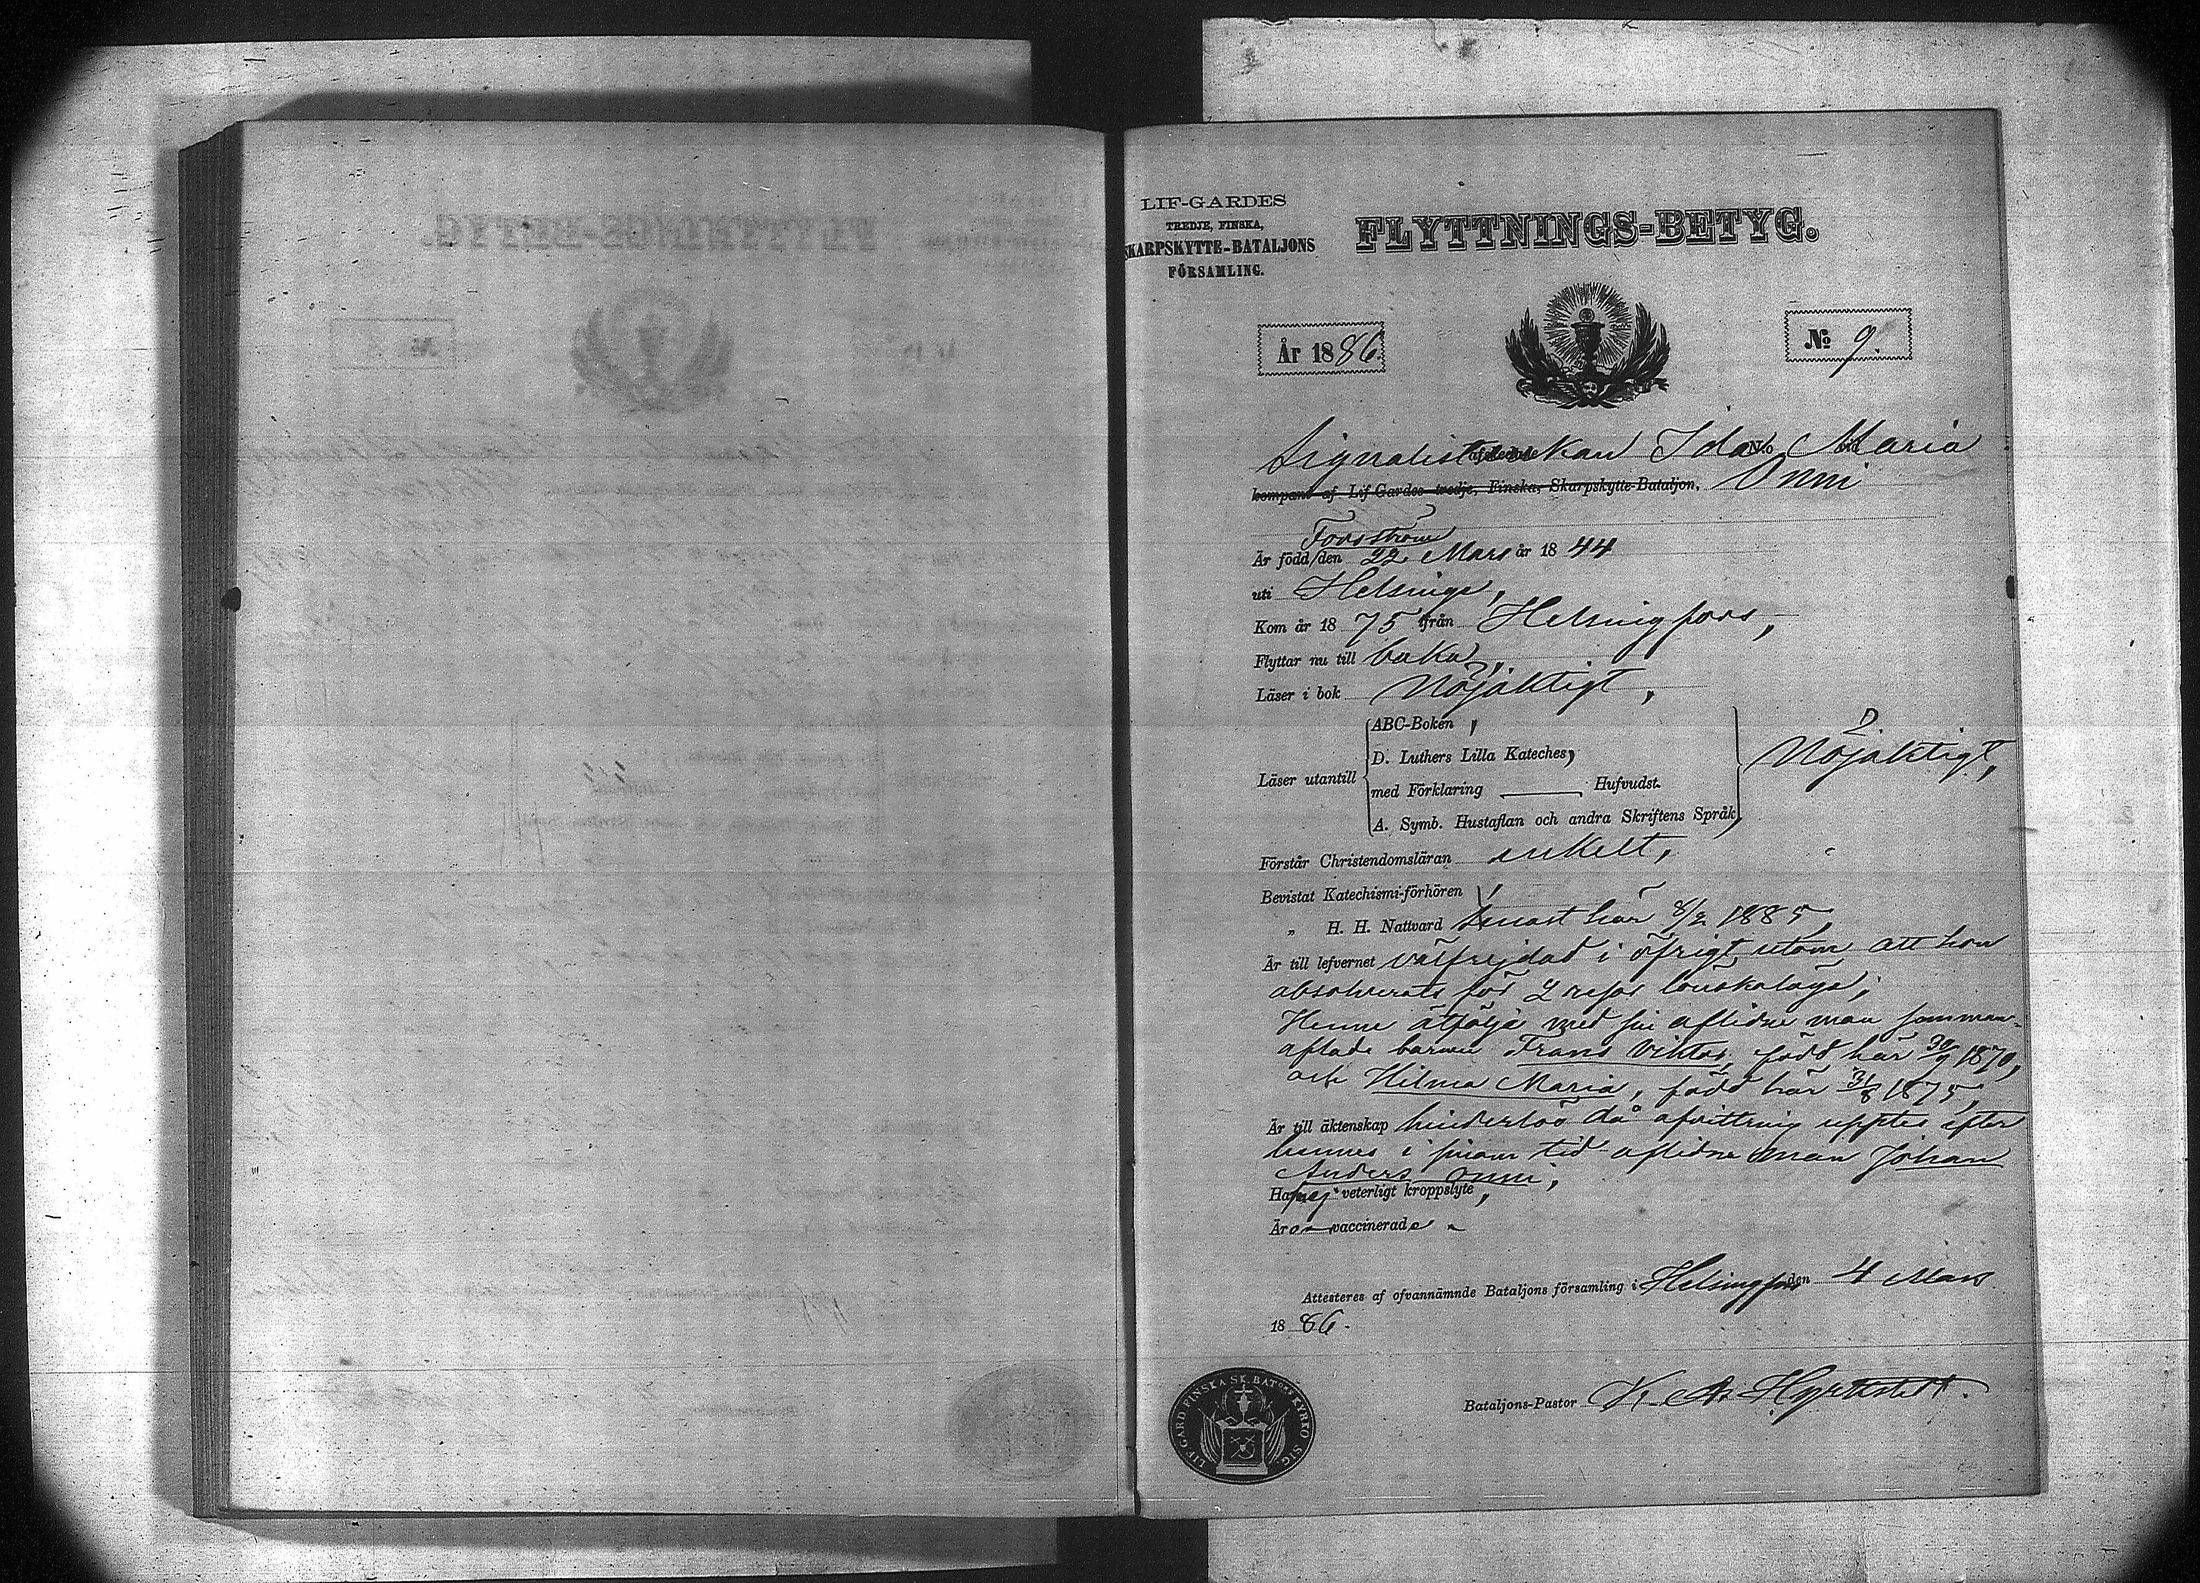 LIF-GARDES
TREDJE, FINSKA,
SKARPSKYTTE-BATALJONS
FÖRSAMLING.
FLYTTNINGS-BETYG.
År 1886.
No 9.
Signalist enkan Ida Maria
kompani af Lif-Gardes tredje, Finska, Skarpskytte-Bataljon, Onni
Forsström
Är född den 22 Mars år 1844
uti Helsinge,
Kom år 1875 ifrån Helsingfors,
Flyttar nu till baka,
Läser i bok Nöjaktigt,
Läser utantill
ABC-Boken
D. Luthers Lilla Kateches
med Förklaring Hufvudst.
A. Symb. Hustaflan och andra Skriftens Språk
Nöjaktigt,
Förstår Christendomsläran enkelt,
Bevistat Katechismi-förhören
„ H. H. Nattvard senast här 8/2 1885,
Är till lefvernet välfrejdad i öfrigt utom att hon
absolverats för 2 resor lönskaläge;
Henne åtfölja med sin aflidne man samman-
aflade barnen Frans Viktor, född här 30/9 1870,
och Hilma Maria, född här 31/8 1875,
Är till äktenskap hinderlös då afvittring upptes efter
hennes i sinom tid aflidne man Johan
Anders Onni,
Har ej veterligt kroppslyte,
Är vaccinerad
Attesteres af ofvannämnde Bataljons församling i Helsingfors den 4 Mars
1886.
Bataljons-Pastor K. A. Hyrkstedt.
LIF-GARD. FINSKA SK. BAT:NS KYRKO SIG.